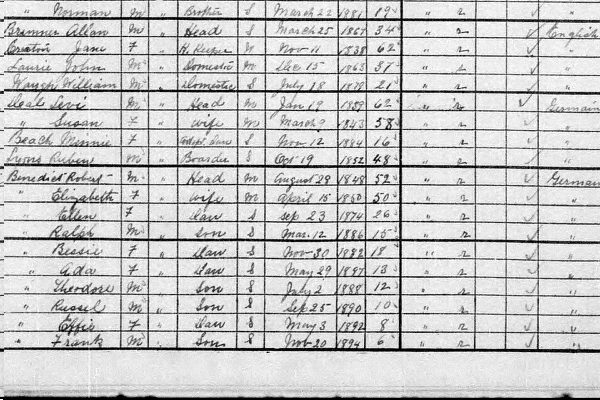 " Norman M " Brother S March 22 1981 19 " 2 ✓ "
Bremner Allan M " Head S March 25 1867 34 " 2 ✓ English
Jane F " H. Keeper W Nov 11 1838 62 " 2 ✓ "
Laurie John M " Domestic M Dec 15 1863 37 " 2 ✓ "
William M " Domestic S July 18 1878 21 " 2 ✓ "
Levi M " Head M Jan 19 1839 62 " 2 ✓ German
" Susan F " Wife M March 9 1843 58 " 2 ✓ "
Beach Minnie F " Dau S Nov 12 1884 16 " 2 ✓ "
Lyons Ruben M " Boarder S Oct 19 1852 48 " 2 ✓ "
Benedict Robert M " Head M August 29 1848 52 " 2 ✓ German
" Elizabeth F " Wife M April 15 1850 50 " 2 ✓ "
" Ellen F " Dau S Sep 23 1874 26 " 2 ✓ "
" Ralph M " Son S Mar 12 1886 15 " 2 ✓ "
" Bessie F " Dau S Nov 30 1882 18 " 2 ✓ "
" Ada F " Dau S May 29 1887 13 " 2 ✓ "
" Theodore M " Son S July 2 1888 12 " 2 ✓ "
" Russel M " Son S Sep 25 1890 10 " 2 ✓ "
" Effie F " Dau S May 3 1892 8 " 2 ✓ "
" Frank M " Son S Nov 20 1894 6 " 2 ✓ "